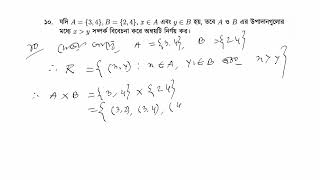 ১০. যদি A = {3, 4}, B = {2, 4}, x ∈ A এবং y ∈ B হয়, তবে A ও B এর উপাদানগুলোর
মধ্যে x > y সম্পর্ক বিবেচনা করে অন্বয়টি নির্ণয় কর।
A = {3, 4}, B = {2 4}
∴ R = {(x, y) : x ∈ A, y ∈ B এবং x > y}
∴ A × B = {3, 4} × {2 4}
= {(3, 2), (3, 4), (4